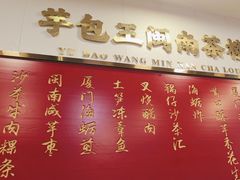 芋包王闽南茶楼
YU BAO WANG MIN NAN CHA LOU
沙茶牛肉粿条
闽南咸芋枣
厦门海蛎煎
土笋冻章鱼
叉烧酸肉
锅仔沙茶汇
海蛎炸